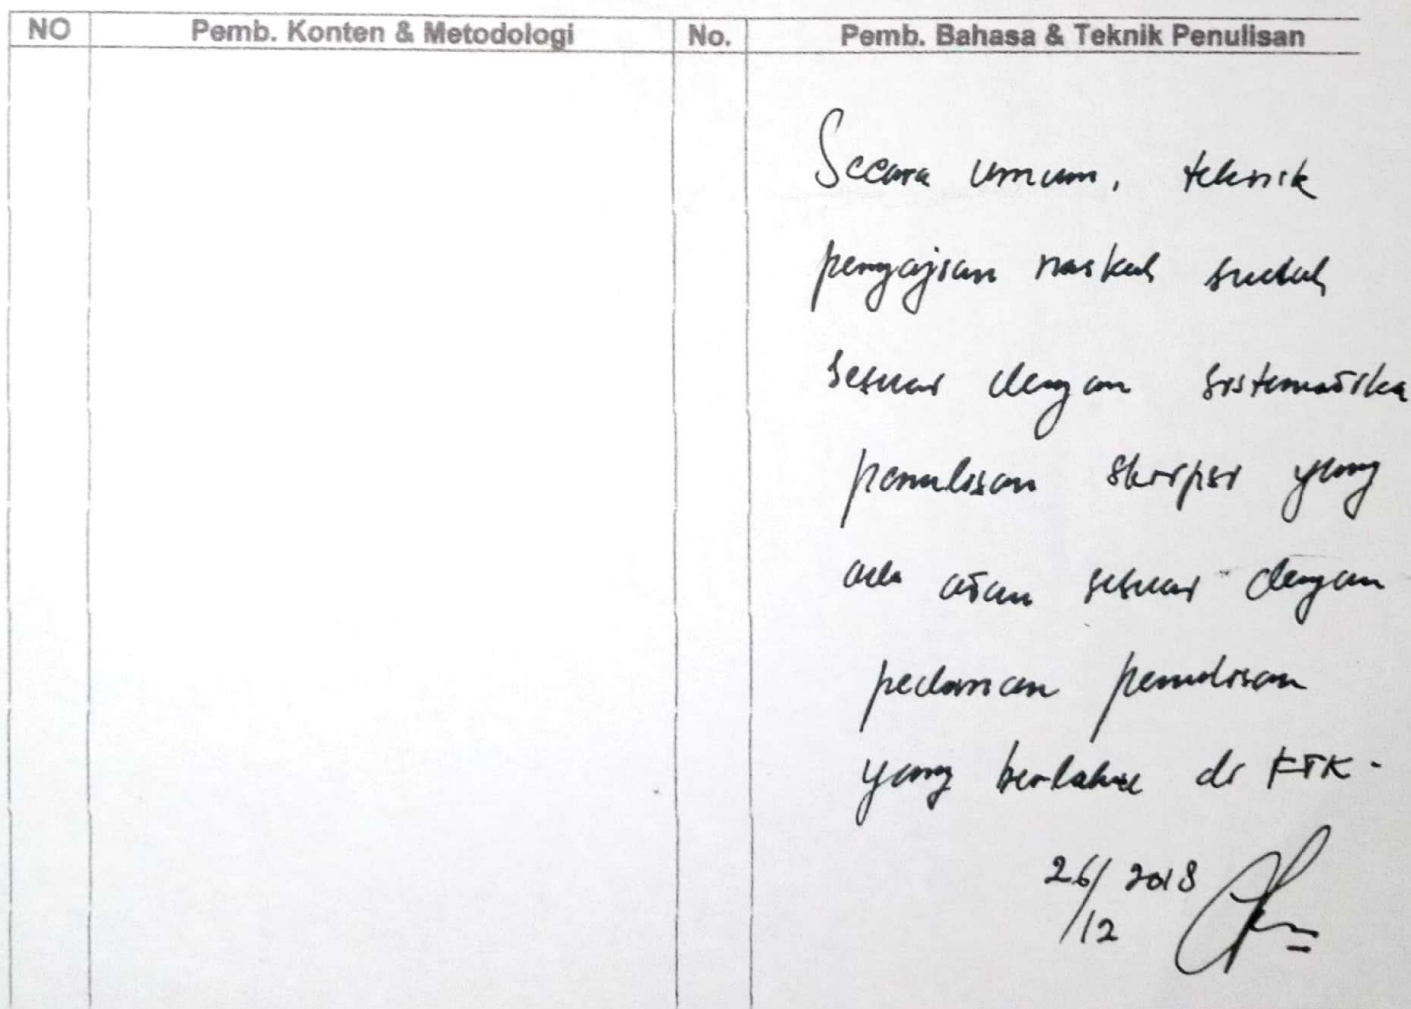 NO Pemb. Konten & Metodologi No. Pemb. Bahasa & Teknik Penulisan
Secara umum, teknik
penyajian naskah sudah
sesuai dengan sistematika
penulisan skripsi yang
ada atau sesuai dengan
pedoman penulisan
yang berlaku di FTK.
26/12 2018